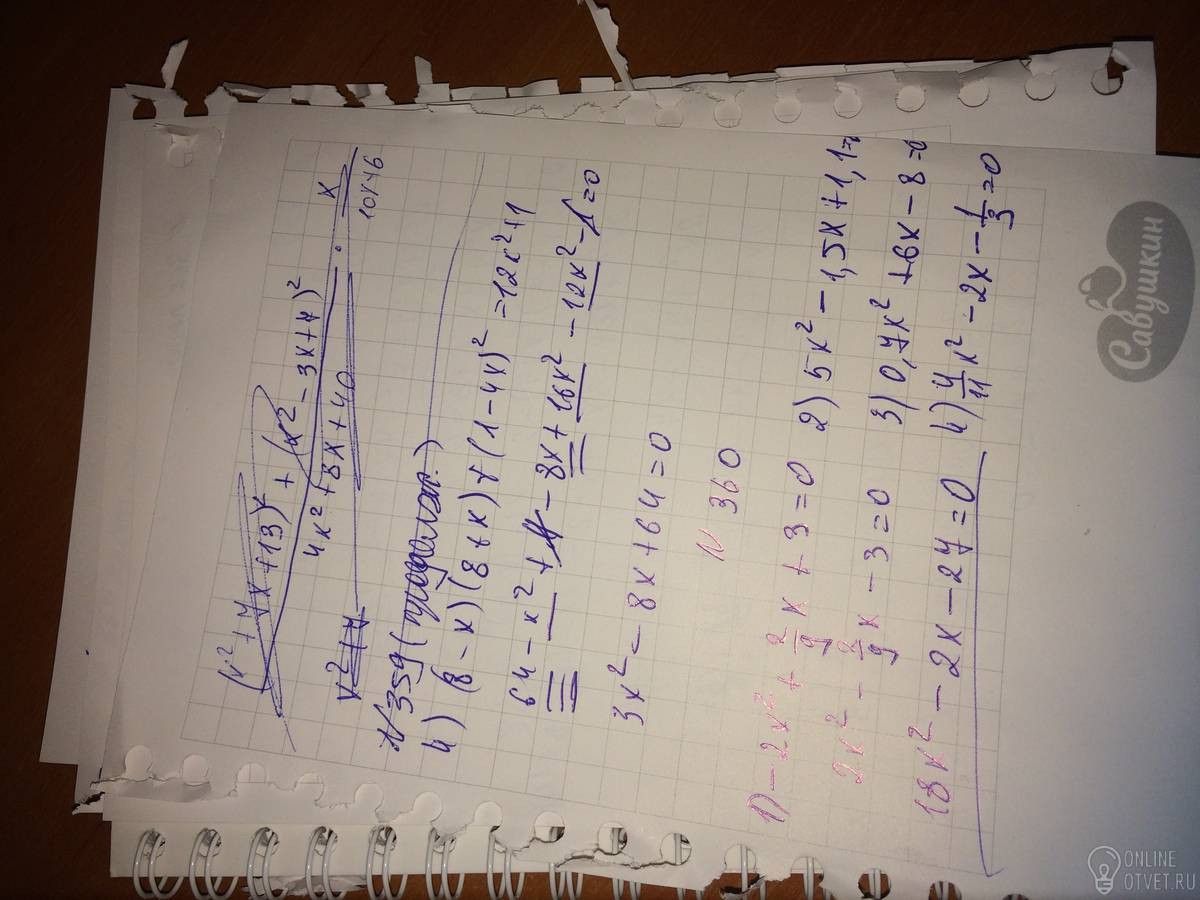 (x²+7x+13)² + (x²-3x+7)²
4x²+8x+40 · x
10x+6
x²+7
N 359 (продолж.)
4) (8-x)(8+x)+(1-4x)²=12x²+1
64-x²+1-8x+16x²-12x²-1=0
3x²-8x+64=0
N 360
1) -2x²+2/9x+3=0
2x²-2/9x-3=0
18x²-2x-27=0
2) 5x²-1,5x+1,1=
3) 0,7x²+6x-8=0
4) 4/11x²-2x-1/3=0
Савушкин
ONLINE
OTVET.RU